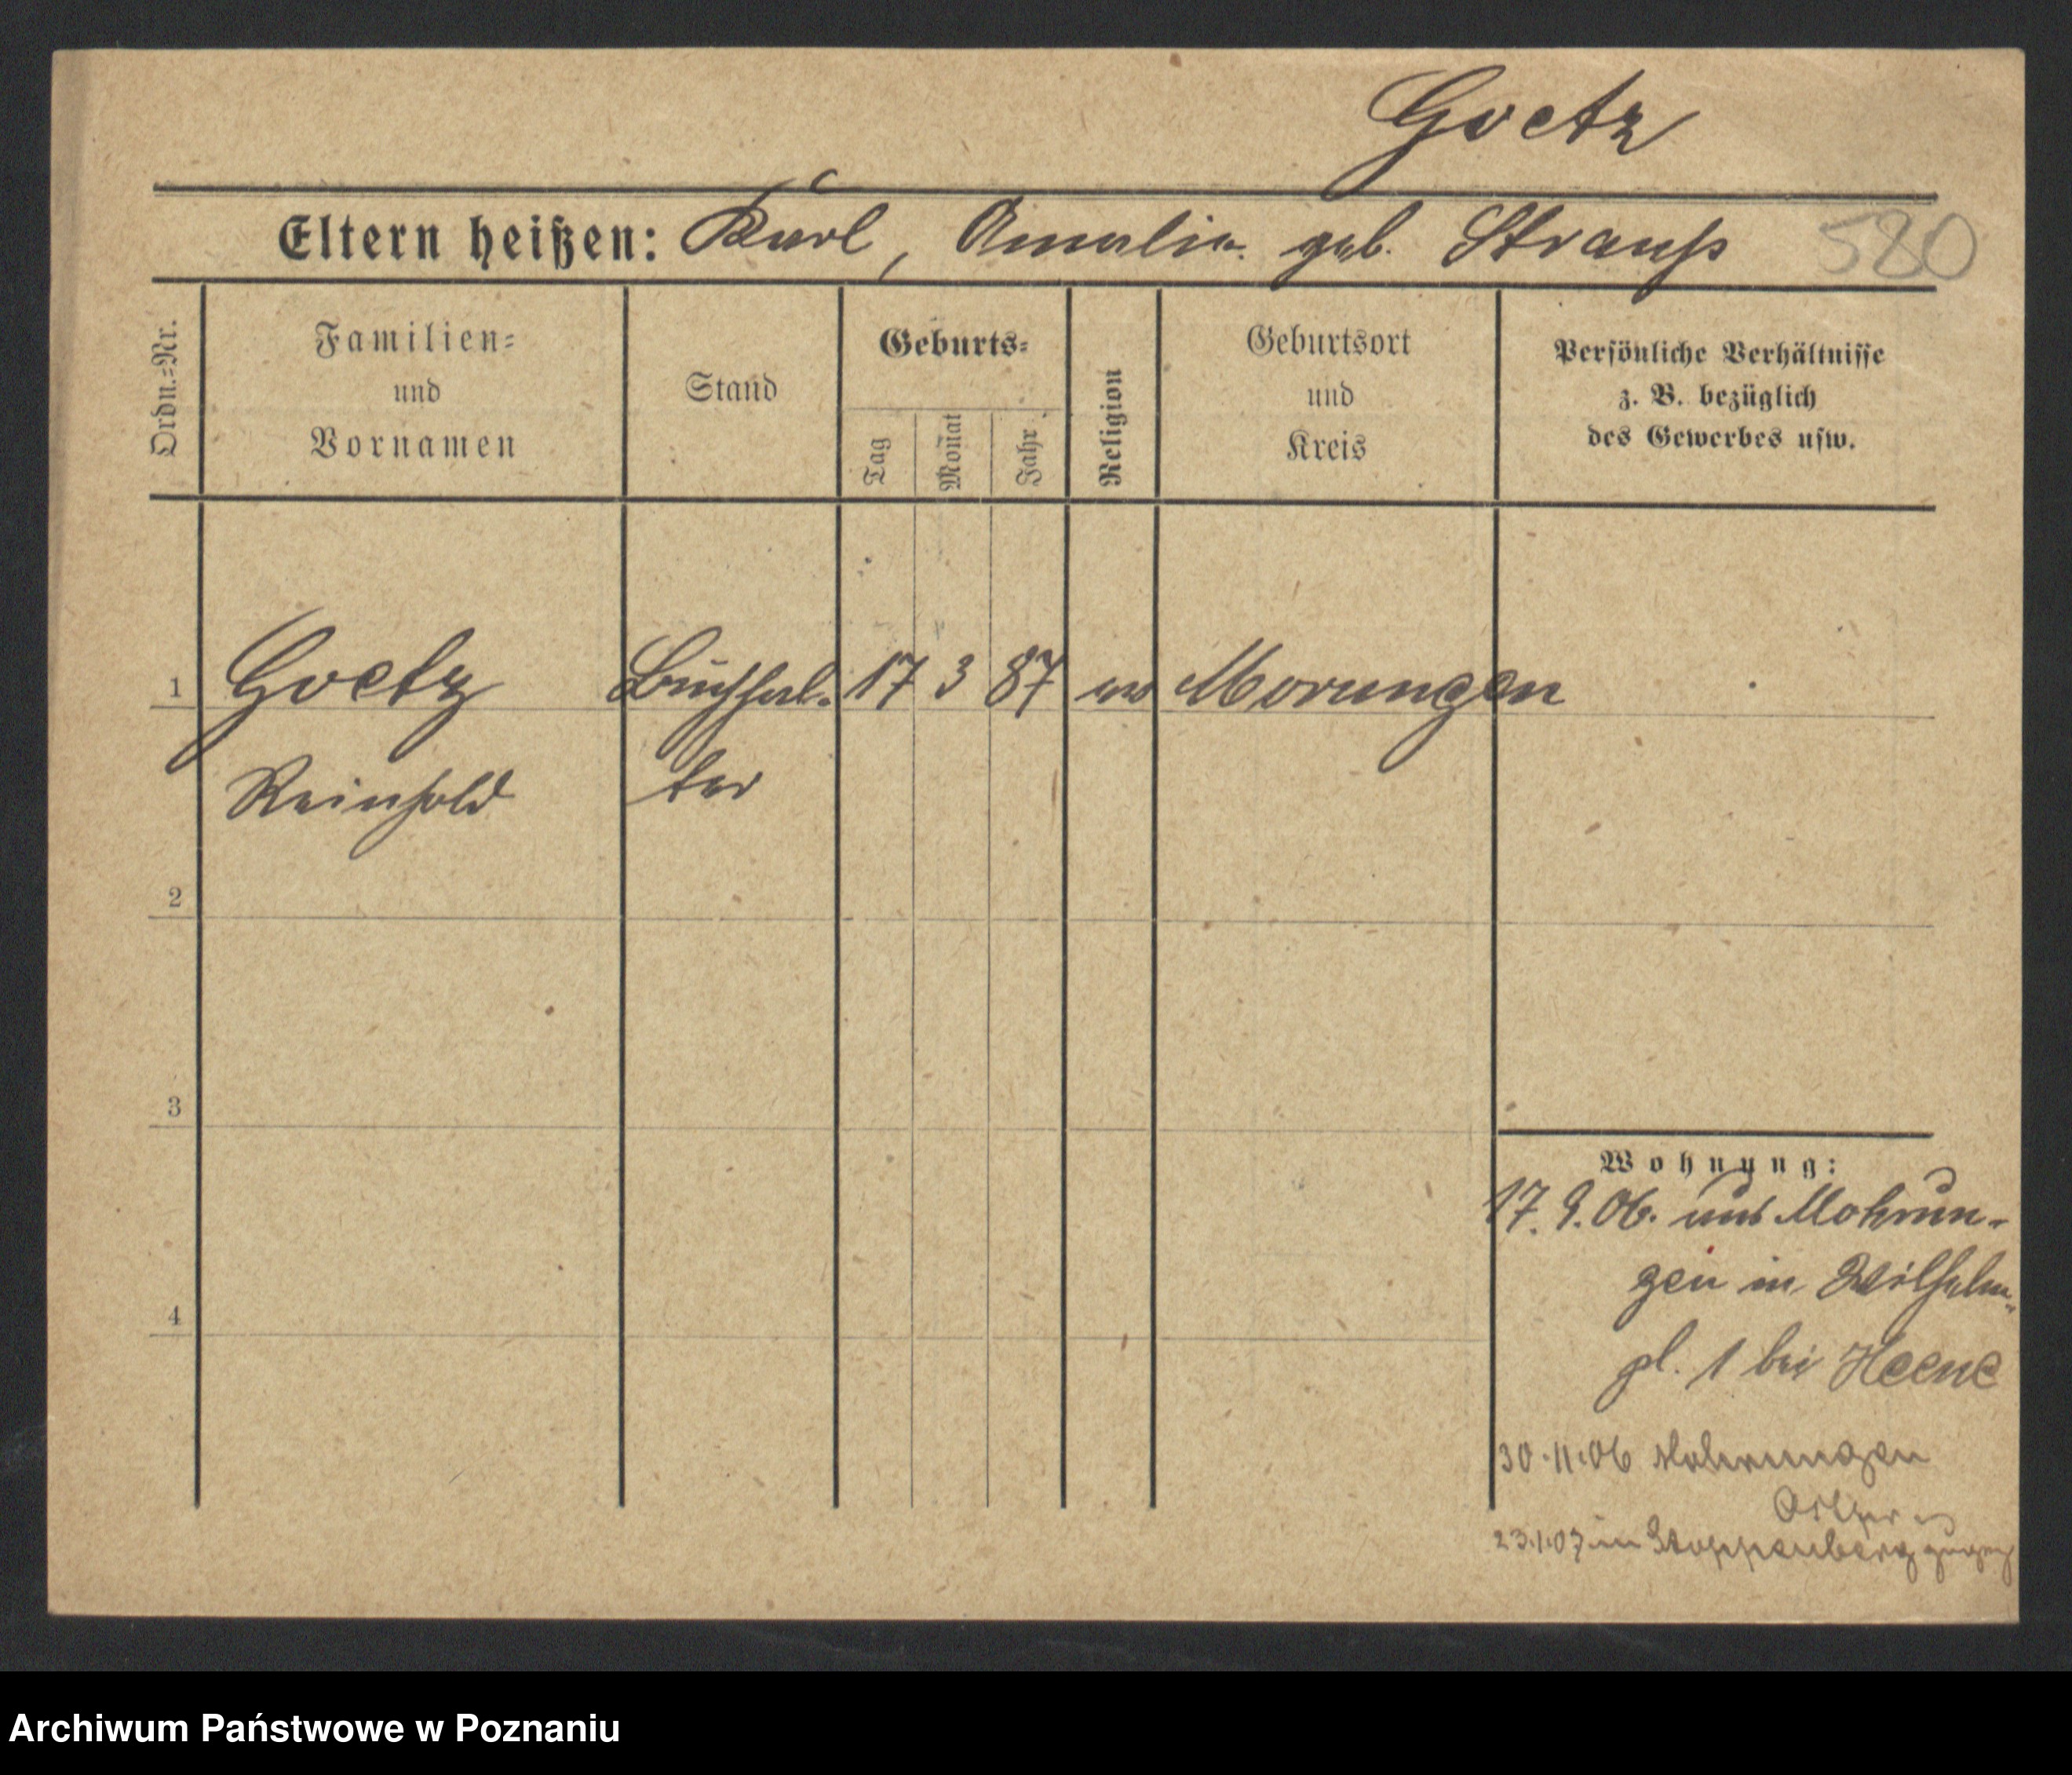 Goetz
Eltern heißen: Karl, Amalie geb. Strauß
580
Ordn.=Nr.
Familien=
und
Vornamen
Stand
Geburts=
Tag
Monat
Jahr
Religion
Geburtsort
und
Kreis
Persönliche Verhältnisse
z. B. bezüglich
des Gewerbes usw.
1 Goetz Buchhal- 17 3 87 ev Morungen
Reinhold ter
2
3
4
Wohnung:
17. 9. 06. aus Mohrun-
gen in Wilhelm-
pl. 1 bei Heene
30.11.06 Mohrungen
23.1.07 in Stoppenberg
Archiwum Państwowe w Poznaniu